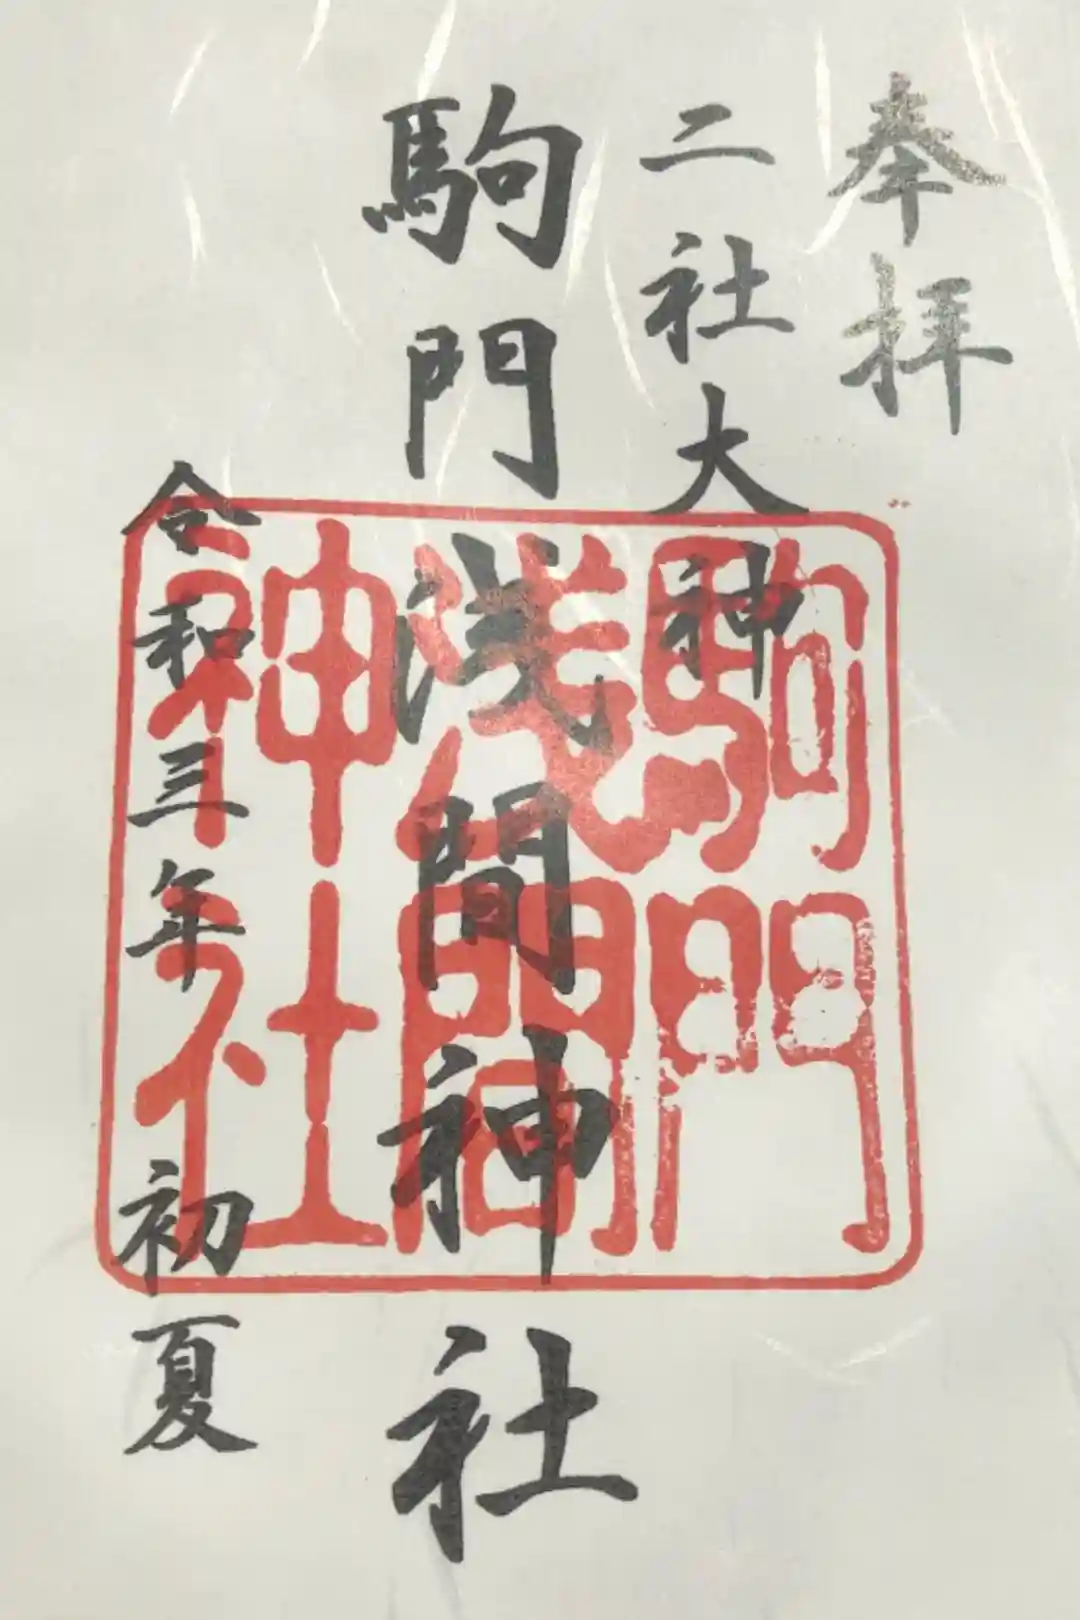 奉拝
二社大神
駒門浅間神社
令和三年初夏
駒門
浅間
神社